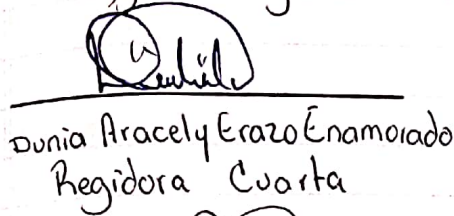 Dunia Aracely Erazo Enamorado
Regidora Cuarta